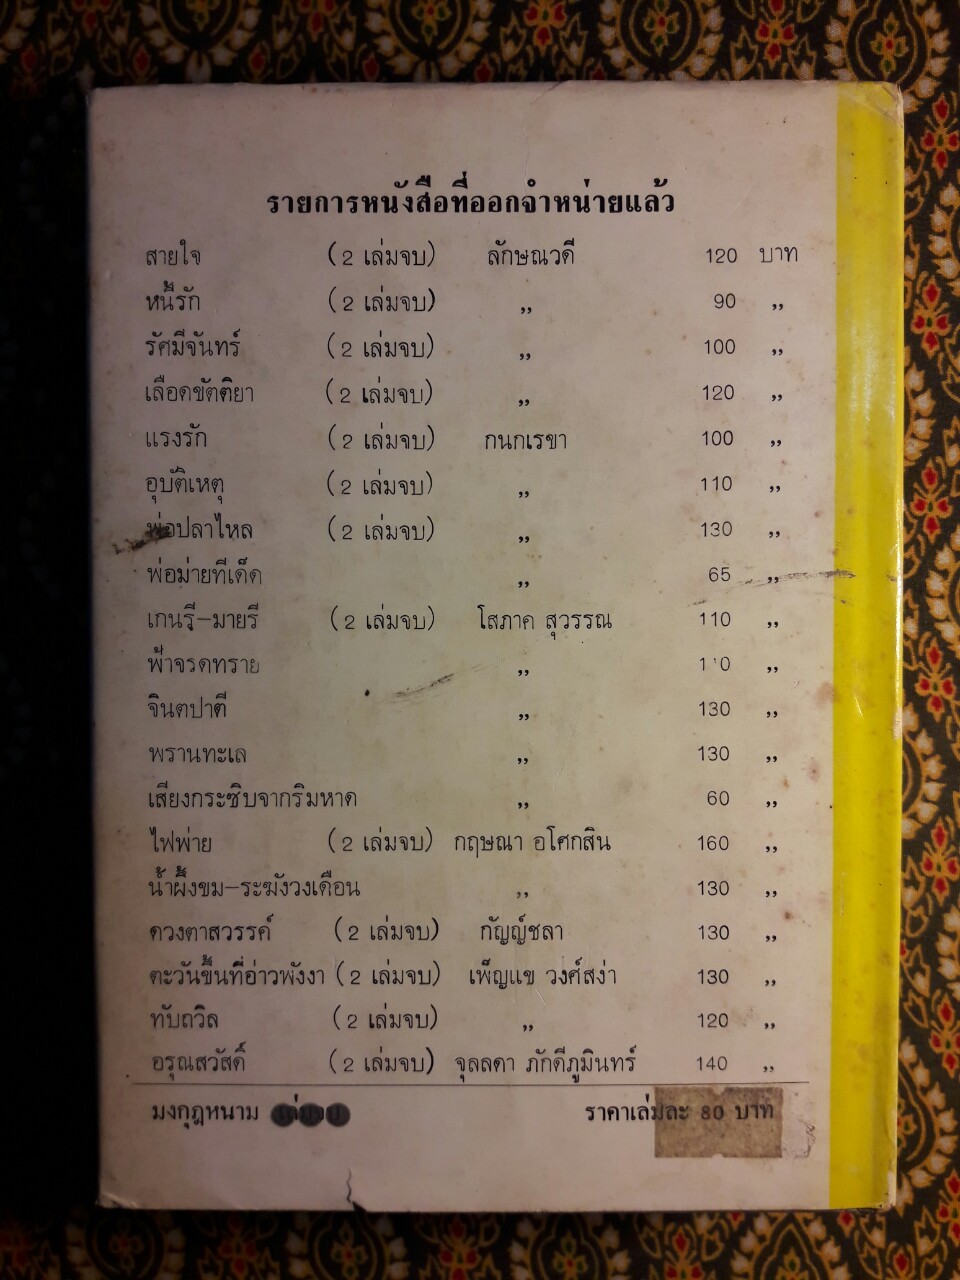 รายการหนังสือที่ออกจำหน่ายแล้ว
สายใจ (2 เล่มจบ) ลักษณวดี 120 บาท
หนี้รัก (2 เล่มจบ) ,, 90 ,,
รัศมีจันทร์ (2 เล่มจบ) ,, 100 ,,
เลือดขัตติยา (2 เล่มจบ) ,, 120 ,,
แรงรัก (2 เล่มจบ) กนกเรขา 100 ,,
อุบัติเหตุ (2 เล่มจบ) ,, 110 ,,
พ่อปลาไหล (2 เล่มจบ) ,, 130 ,,
พ่อม่ายทีเด็ด ,, 65 ,,
เกนรี-มายรี (2 เล่มจบ) โสภาค สุวรรณ 110 ,,
ฟ้าจรดทราย ,, ,,
จินตปาตี ,, 130 ,,
พรานทะเล ,, 130 ,,
เสียงกระซิบจากริมหาด ,, 60 ,,
ไฟพ่าย (2 เล่มจบ) กฤษณา อโศกสิน 160 ,,
น้ำผึ้งขม-ระฆังวงเดือน ,, 130 ,,
ดวงตาสวรรค์ (2 เล่มจบ) กัญญ์ชลา 130 ,,
ตะวันขึ้นที่อ่าวพังงา (2 เล่มจบ) เพ็ญแข วงศ์สง่า 130 ,,
ทับถวิล (2 เล่มจบ) ,, 120 ,,
อรุณสวัสดิ์ (2 เล่มจบ) จุลลดา ภักดีภูมินทร์ 140 ,,
มงกุฎหนาม เล่มจบ ราคาเล่มละ 80 บาท